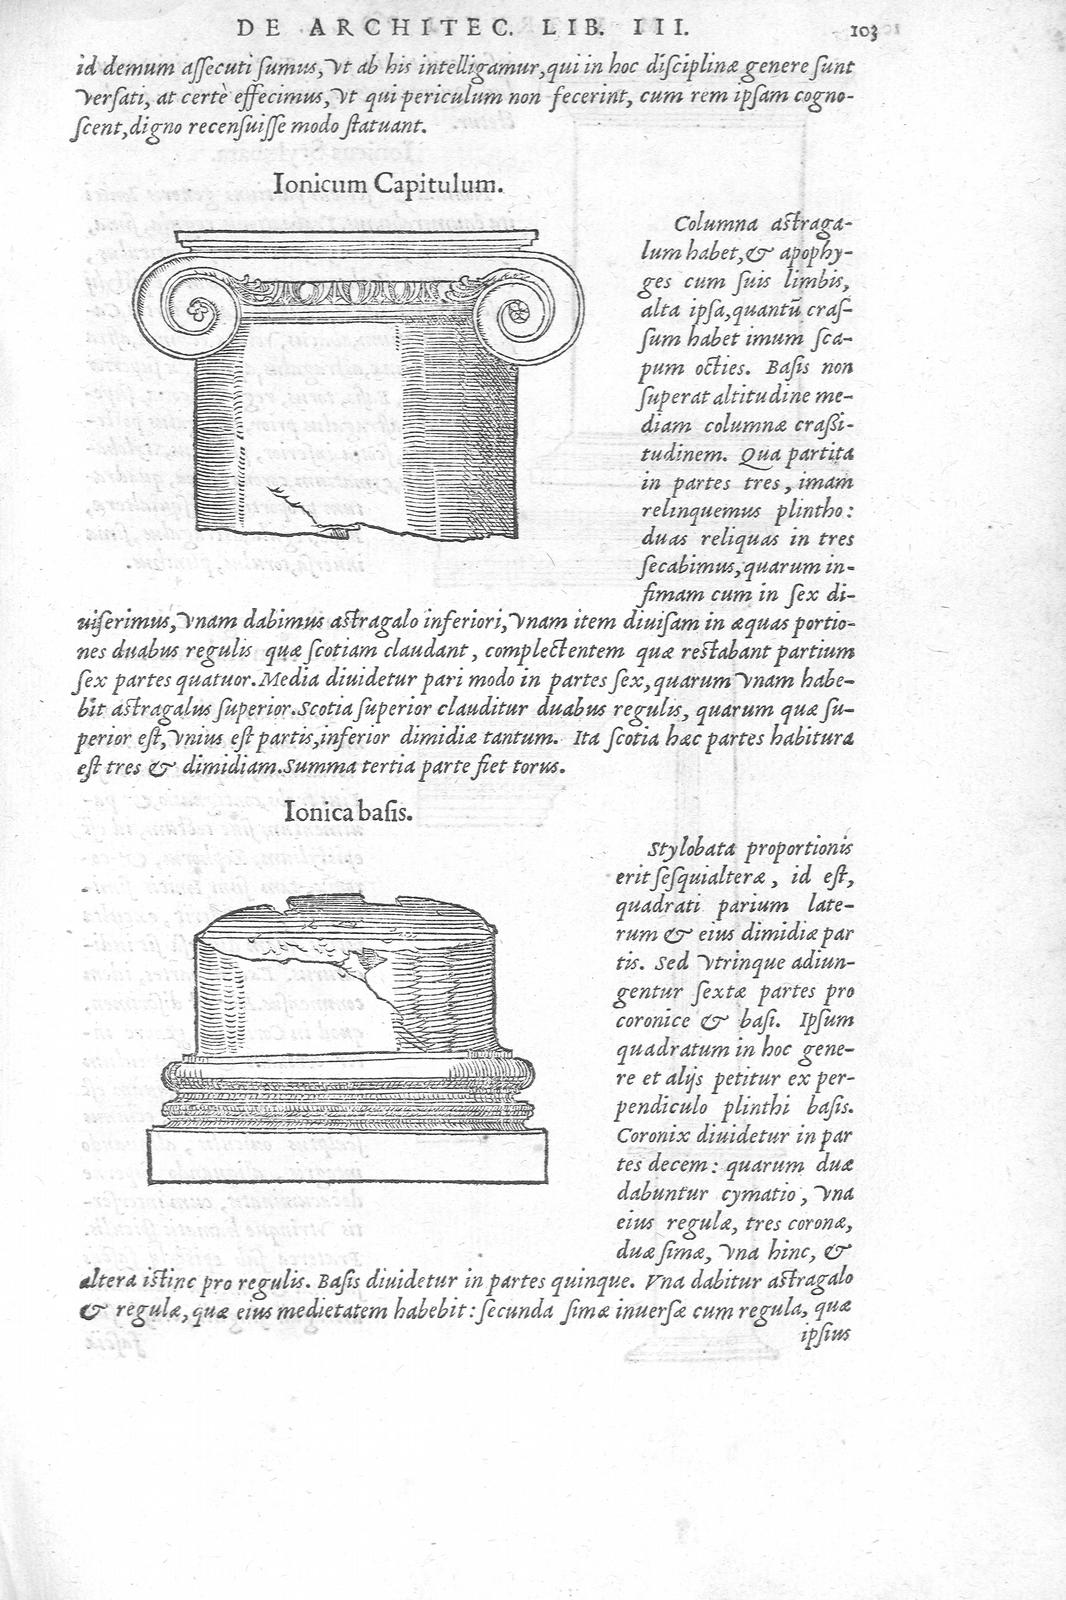 DE ARCHITEC. LIB. III. 103
id demum aſſecuti ſumus, vt ab his intelligamur, qui in hoc diſciplinæ genere ſunt
verſati, at certè effecimus, vt qui periculum non fecerint, cum rem ipſam cogno-
ſcent, digno recenſuiſſe modo ſtatuant.
Ionicum Capitulum.
Columna aſtraga-
lum habet, & apophy-
ges cum ſuis limbis,
alta ipſa, quantū craſ-
ſum habet imum ſca-
pum octies. Baſis non
ſuperat altitudine me-
diam columnæ craſſi-
tudinem. Qua partita
in partes tres, imam
relinquemus plintho:
duas reliquas in tres
ſecabimus, quarum in-
fimam cum in ſex di-
uiſerimus, vnam dabimus aſtragalo inferiori, vnam item diuiſam in æquas portio-
nes duabus regulis quæ ſcotiam claudant, complectentem quæ reſtabant partium
ſex partes quatuor. Media diuidetur pari modo in partes ſex, quarum vnam habe-
bit aſtragalus ſuperior. Scotia ſuperior clauditur duabus regulis, quarum quæ ſu-
perior eſt, vnius eſt partis, inferior dimidiæ tantum. Ita ſcotia hæc partes habitura
eſt tres & dimidiam. Summa tertia parte fiet torus.
Ionica baſis.
Stylobata proportionis
erit ſeſquialteræ, id eſt,
quadrati parium late-
rum & eius dimidiæ par
tis. Sed vtrinque adiun-
gentur ſextæ partes pro
coronice & baſi. Ipſum
quadratum in hoc gene-
re et alijs petitur ex per-
pendiculo plinthi baſis.
Coronix diuidetur in par
tes decem: quarum duæ
dabuntur cymatio, vna
eius regulæ, tres coronæ,
duæ ſimæ, vna hinc, &
altera iſtinc pro regulis. Baſis diuidetur in partes quinque. Vna dabitur aſtragalo
& regulæ, quæ eius medietatem habebit: ſecunda ſimæ inuerſæ cum regula, quæ
ipſius